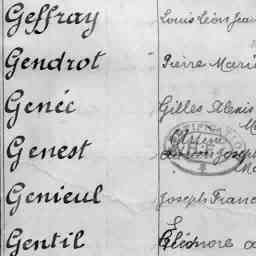 Geffray Louis Léon Jean
Gendrot Pierre Marie
Genéc Gilles Alexis
Genest Joseph
Genieul Joseph Franc
Gentil Eléonore